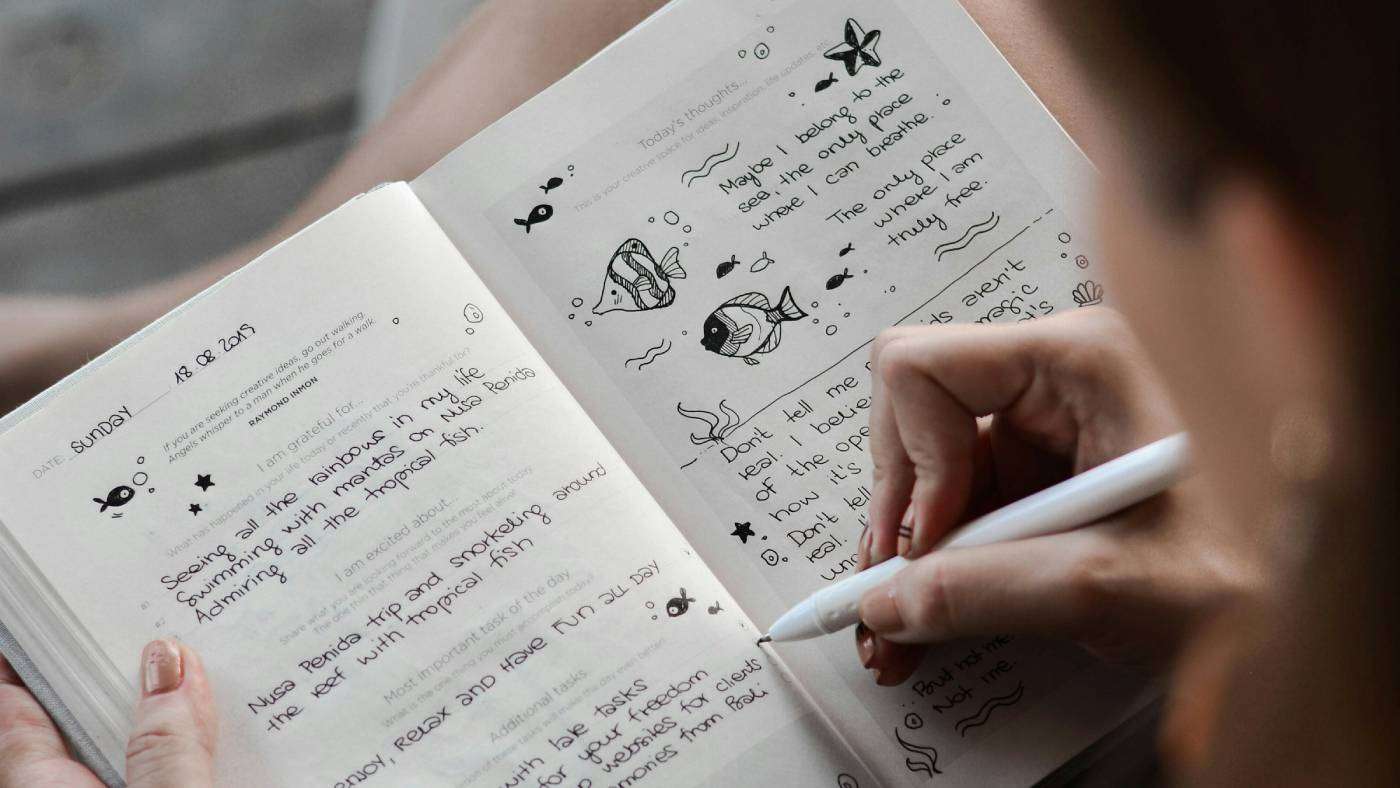 DATE: SUNDAY 18.08.2019
If you are seeking creative ideas, go out walking.
Angels whisper to a man when he goes for a walk.
RAYMOND INMON
I am grateful for...
What has happened in your life today or recently that you're thankful for?
Seeing all the rainbows in my life
Swimming with mantas on Nusa Penida
Admiring all the tropical fish.
I am excited about...
Share what you are looking forward to the most about today.
make you feel alive!
Nusa Penida trip and snorkeling around
the reef with tropical fish
Most important task of the day
What is the one thing you must accomplish today?
ENJOY, RELAX AND HAVE FUN ALL DAY
Additional tasks
tasks will make the day even better!
with tasks
for your freedom
websites for clients
from Bali
Today's thoughts...
This is your creative space for ideas, inspiration, life updates, etc
Maybe I belong to the
sea, the only place
where I can breathe.
The only place
where I am
truly free.
aren't
magic
Don't tell me
real. I
of the
how it's
Don't tell
real.
But not me.
Not me.